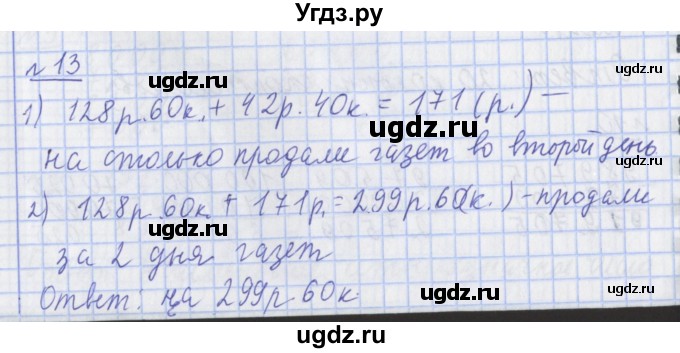 Угдз.ру
№ 13
1) 128р.60к. + 42р.40к. = 171 (р.) —
на столько продали газет во второй день
2) 128р.60к + 171р. = 299р.60(к.) - продали
за 2 дня газет
Ответ: на 299р 60к
ugdz.ru
ugdz.ru
ugdz.ru
ugdz.ru
ugdz.ru
ugdz.ru
ugdz.ru
ugdz.ru
ugdz.ru
ugdz.ru